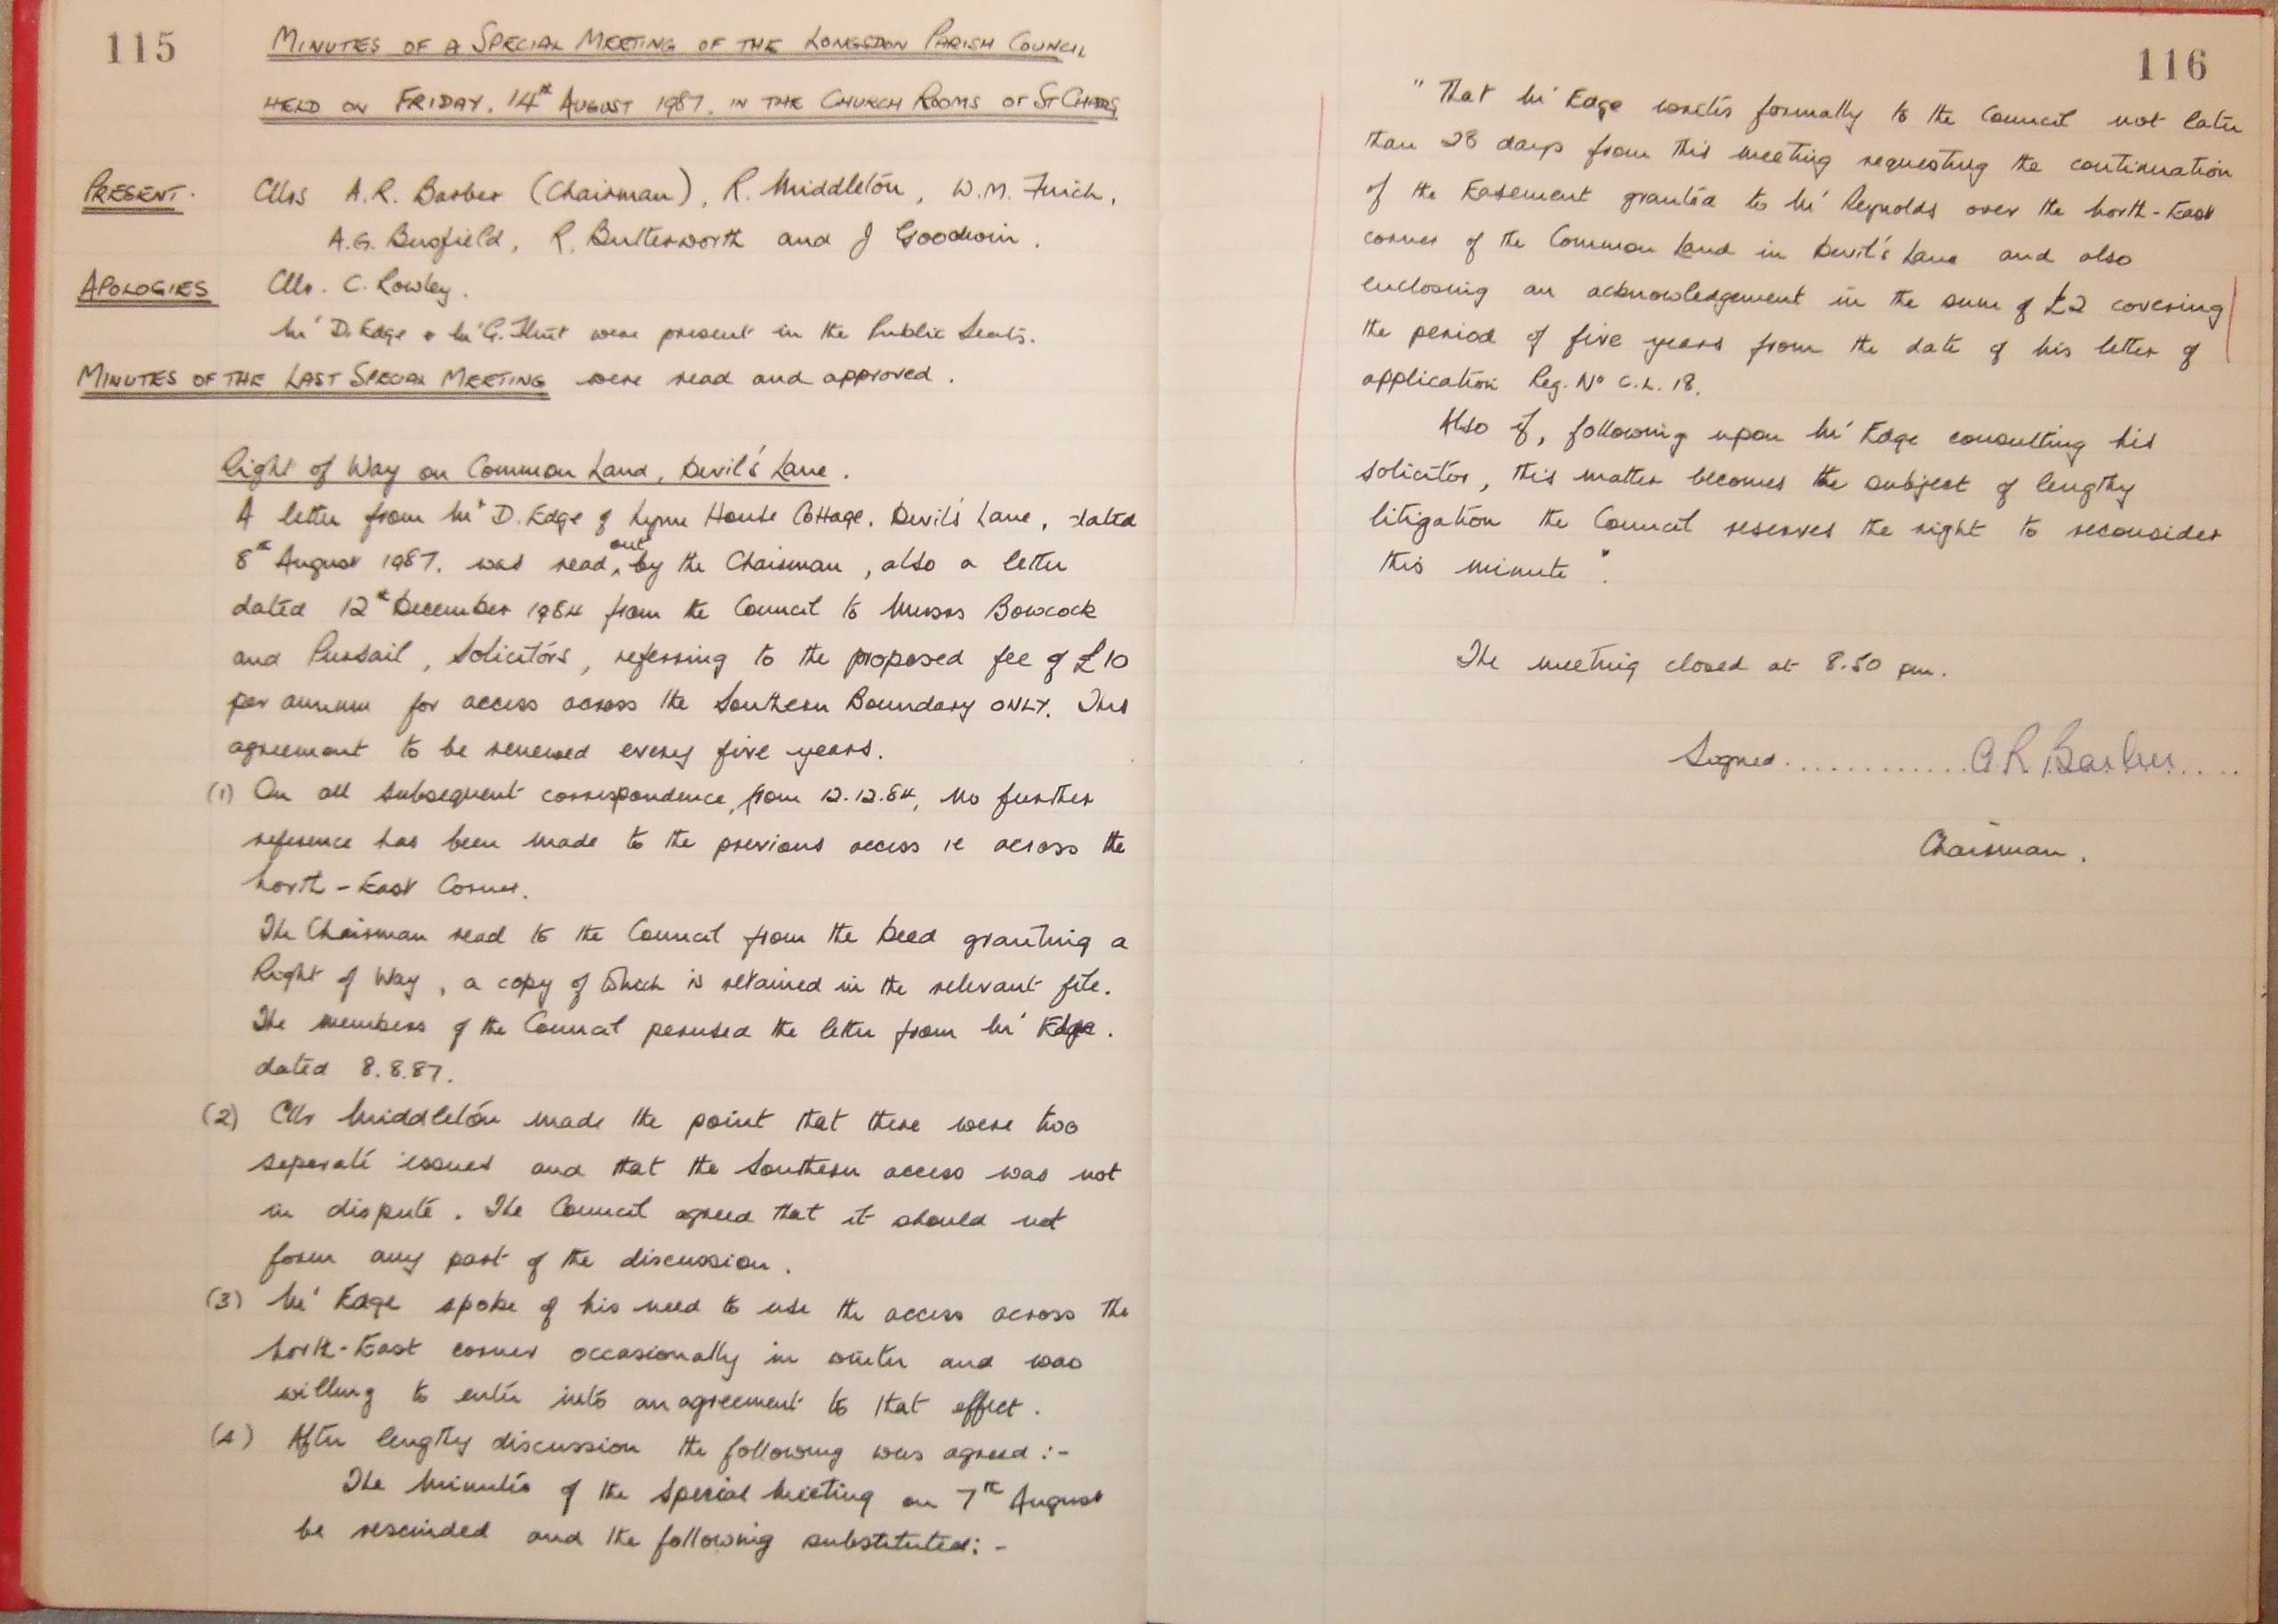 115
MINUTES OF A SPECIAL MEETING OF THE LONGSDON PARISH COUNCIL
HELD ON FRIDAY. 14th AUGUST 1987. IN THE CHURCH ROOMS OF ST CHADS
PRESENT. Cllrs A.R. Barber (Chairman), R. Middleton, W.M. Finch,
A.G. Busfield, R. Butterworth and J Goodwin.
APOLOGIES Cllr. C. Rowley.
Mr D. Edge & Mr G. Flint were present in the Public Seats.
MINUTES OF THE LAST SPECIAL MEETING were read and approved.
Right of Way on Common Land, Devil's Lane.
A letter from Mr D. Edge of Lynn House Cottage, Devil's Lane, dated
8th August 1987. was read out by the Chairman, also a letter
dated 12th December 1984 from the Council to Messrs Bowcock
and Pursail, Solicitors, referring to the proposed fee of £10
per annum for access across the Southern Boundary ONLY. This
agreement to be renewed every five years.
(1) On all subsequent correspondence, from 12.12.84, no further
reference has been made to the previous access ie across the
North-East Corner.
The Chairman read to the Council from the Deed granting a
Right of Way, a copy of which is retained in the relevant file.
The members of the Council perused the letter from Mr Edge.
dated 8.8.87.
(2) Cllr Middleton made the point that there were two
seperate issues and that the Southern access was not
in dispute. The Council agreed that it should not
form any part of the discussion.
(3) Mr Edge spoke of his need to use the access across the
North-East corner occasionally in winter and was
willing to enter into an agreement to that effect.
(4) After lengthy discussion the following was agreed:-
The Minutes of the Special Meeting on 7th August
be rescinded and the following substituted:-
116
"That Mr Edge writes formally to the Council not later
than 28 days from this meeting requesting the continuation
of the Easement granted to Mr Reynolds over the North-East
corner of the Common Land in Devil's Lane and also
enclosing an acknowledgement in the sum of £2 covering
the period of five years from the date of his letter of
application Reg. No C.L. 18.
Also if, following upon Mr Edge consulting his
solicitor, this matter becomes the subject of lengthy
litigation the Council reserves the right to reconsider
this minute".
The meeting closed at 8.50 pm.
Signed.............A R Barber.....
Chairman.